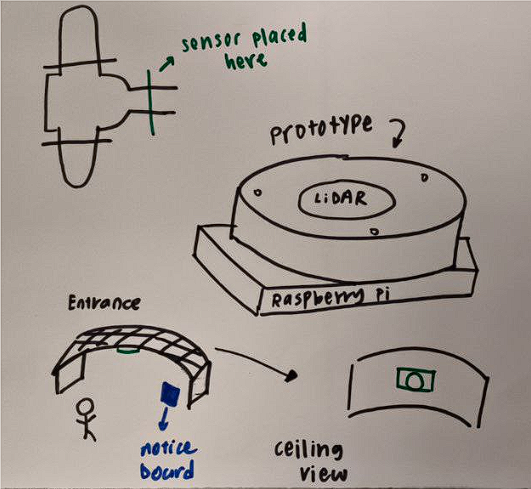 sensor placed
here
prototype
LiDAR
Raspberry Pi
Entrance
notice
board
ceiling
view